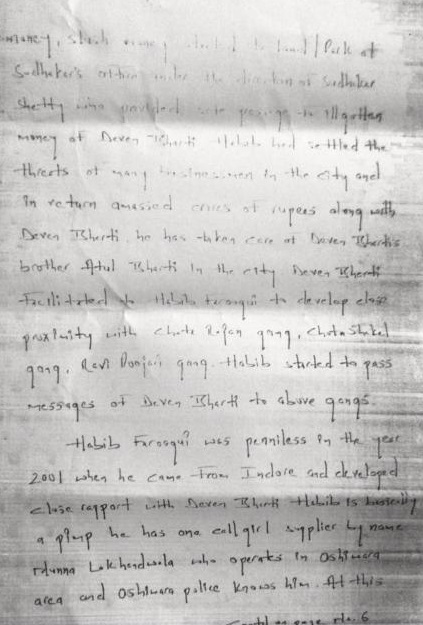 money, such money started to land / Park at
Sudhakar's office under the direction of Sudhakar
Shetty who provided safe passage to illgotten
money of Deven Bharti Habib had settled the
threats of many businessmen in the city and
in return amassed crores of rupees along with
Deven Bharti, he has taken care of Deven Bharti's
brother Atul Bharti in the city Deven Bharti
facilitated to Habib faroogui to develop close
proximity with Chota Rajan gang, Chota Shakel
gang, Ravi Poojari gang. Habib started to pass
messages of Deven Bharti to above gangs.
Habib Faroogui was penniless in the year
2001 when he came from Indore and developed
close rapport with Deven Bharti Habib is basically
a pimp he has one call girl supplier by name
Munna Lokhandwala who operates in Oshiwara
area and Oshiwara police knows him. At this
Contd on page No. 6